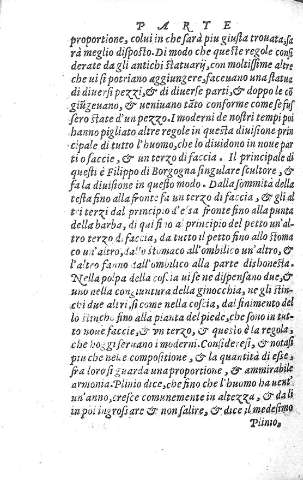 PARTE
proportione, colui in che sarà piu giusta trouata, sa
rà meglio disposto. Di modo che queste regole consi
derate da gli antichi statuarij, con moltissime altre
che ui si potriano aggiungere, faceuano una statua
di diuersi pezzi, & di diuerse parti, & doppo le cõ
giũgeuano, & ueniuano tãto conforme come se fus
sero state d'un pezzo. I moderni de nostri tempi poi
hanno pigliato altre regole in questa diuisione prin
cipale di tutto l'huomo, che lo diuidono in noue par
ti o faccie, & un terzo di faccia. Il principale di
questi è Filippo di Borgogna singulare scultore, &
fa la diuisione in questo modo. Dalla sommità della
testa fino alla fronte fa un terzo di faccia, & gli al
tri terzi dal principio d'essa fronte fino alla punta
della barba, di qui fino al principio del petto un'al
tro terzo di faccia, da tutto il petto fino allo stoma
co un'altro, dallo stomaco all'ombilico un'altro, &
l'altro fanno dall'ombilico alla parte dishonesta.
Nella polpa della coscia ui se ne dispensano due, &
uno nella congiuntura della ginocchia, ne gli stin-
chi due altri, si come nella coscia, dal finimento del
lo stincho fino alla pianta del piede, che sono in tut-
to noue faccie, & un terzo, & questo è la regola,
che hoggi seruano i moderni. Consideresi, & notasi
piu che nelle compositione, & la quantità di este,
fra loro si guarda una proportione, & ammirabile
armonia. Plinio dice, che fino che l'huomo ha uent'
un'anno, cresce comunemente in altezza, & da li
in poi ingrossare & non salire, & dice il medesimo
Plinio,